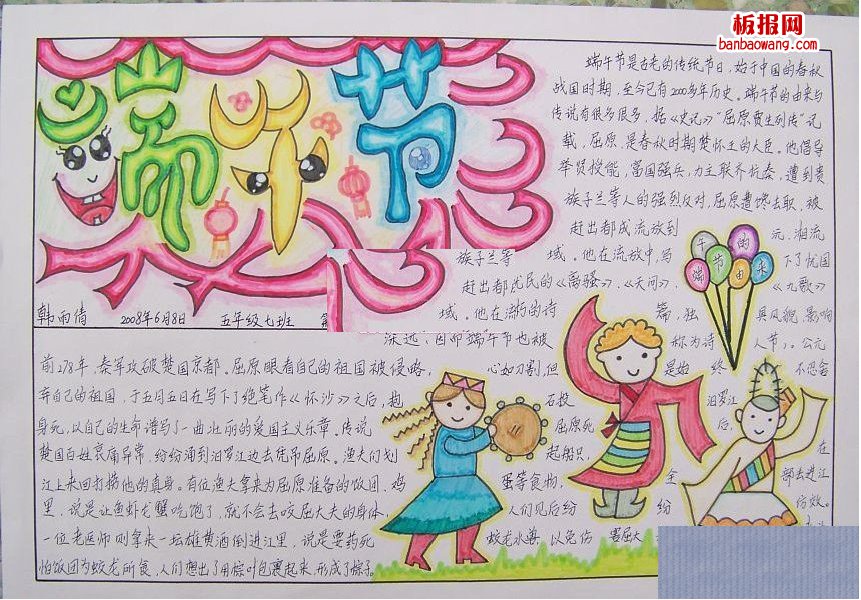 板报网
banbaowang.com
端午节
端午节是古老的传统节日,始于中国的春秋
战国时期,至今已有2000多年历史。端午节的由来与
传说有很多很多,据《史记》“屈原贾生列传”记
载,屈原,是春秋时期楚怀王的大臣。他倡导
举贤授能,富国强兵,力主联齐抗秦,遭到贵
族子兰等人的强烈反对,屈原遭馋去职,被
赶出都成流放到 元、湘流
域。他在流放中,写 下了忧国
午 的
端 节 由 来
族子兰等
赶出都 忧民的《离骚》、《天问》、 《九歌》
域。他在流 的诗 篇,独 具风貌 影响
韩雨倩 2008年6月8日 五年级七班
深远 因 端午节也被 称为诗 人节)。公元
前278年,秦军攻破楚国京都。屈原眼看自己的祖国被侵略, 心如刀割,但 是始 终 不忍舍
弃自己的祖国,于五月五日在写下了绝笔作《怀沙》之后,抱 石投 汨罗江
身死,以自己的生命谱写了一曲壮丽的爱国主义乐章。传说 屈原死 后,
楚国百姓哀痛异常,纷纷涌到汨罗江边去凭吊屈原。渔夫们划 起船只, 在
江上来回打捞他的真身。有位渔夫拿来为屈原准备的饭团、鸡 蛋等食物, 全 部丢进江
里,说是让鱼虾龙蟹吃饱了,就不会去咬屈大夫的身体, 人们见后纷 纷 仿效。
一位老医师则拿来一坛雄黄酒倒进江里,说是要药死 蛟龙水兽,以免伤 害屈大
怕饭团为蛟龙所食,人们想出了用粽叶包裹起来,形成了粽子。